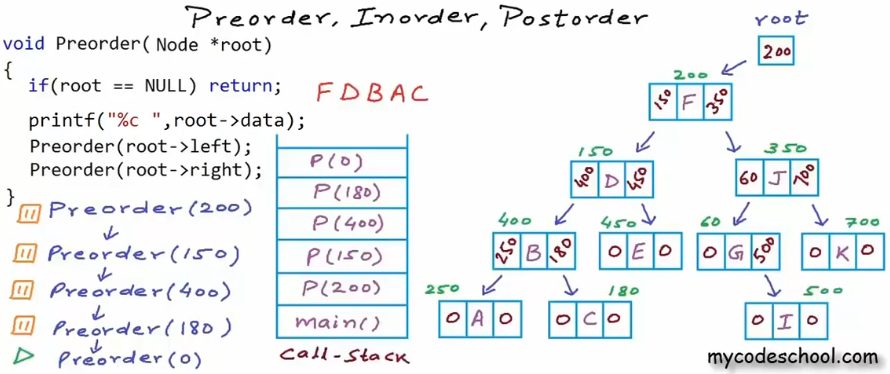 Preorder, Inorder, Postorder
void Preorder( Node *root)
{
if(root == NULL) return;
printf("%c ",root->data);
Preorder(root->left);
Preorder(root->right);
}
F D B A C
Preorder(200)
Preorder(150)
Preorder(400)
Preorder(180)
Preorder(0)
P(0)
P(180)
P(400)
P(150)
P(200)
main()
Call-Stack
root
200
200
150 F 350
150
400 D 450
350
60 J 700
400
250 B 180
450
0 E 0
60
0 G 500
700
0 K 0
250
0 A 0
180
0 C 0
500
0 I 0
mycodeschool.com